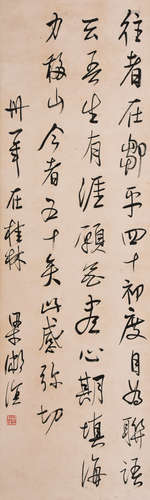 往者在鄒平四十初度自為聯語
云吾生有涯願無盡心期填海
力移山今者五十矣此感彌切
卅一年在桂林 梁漱溟